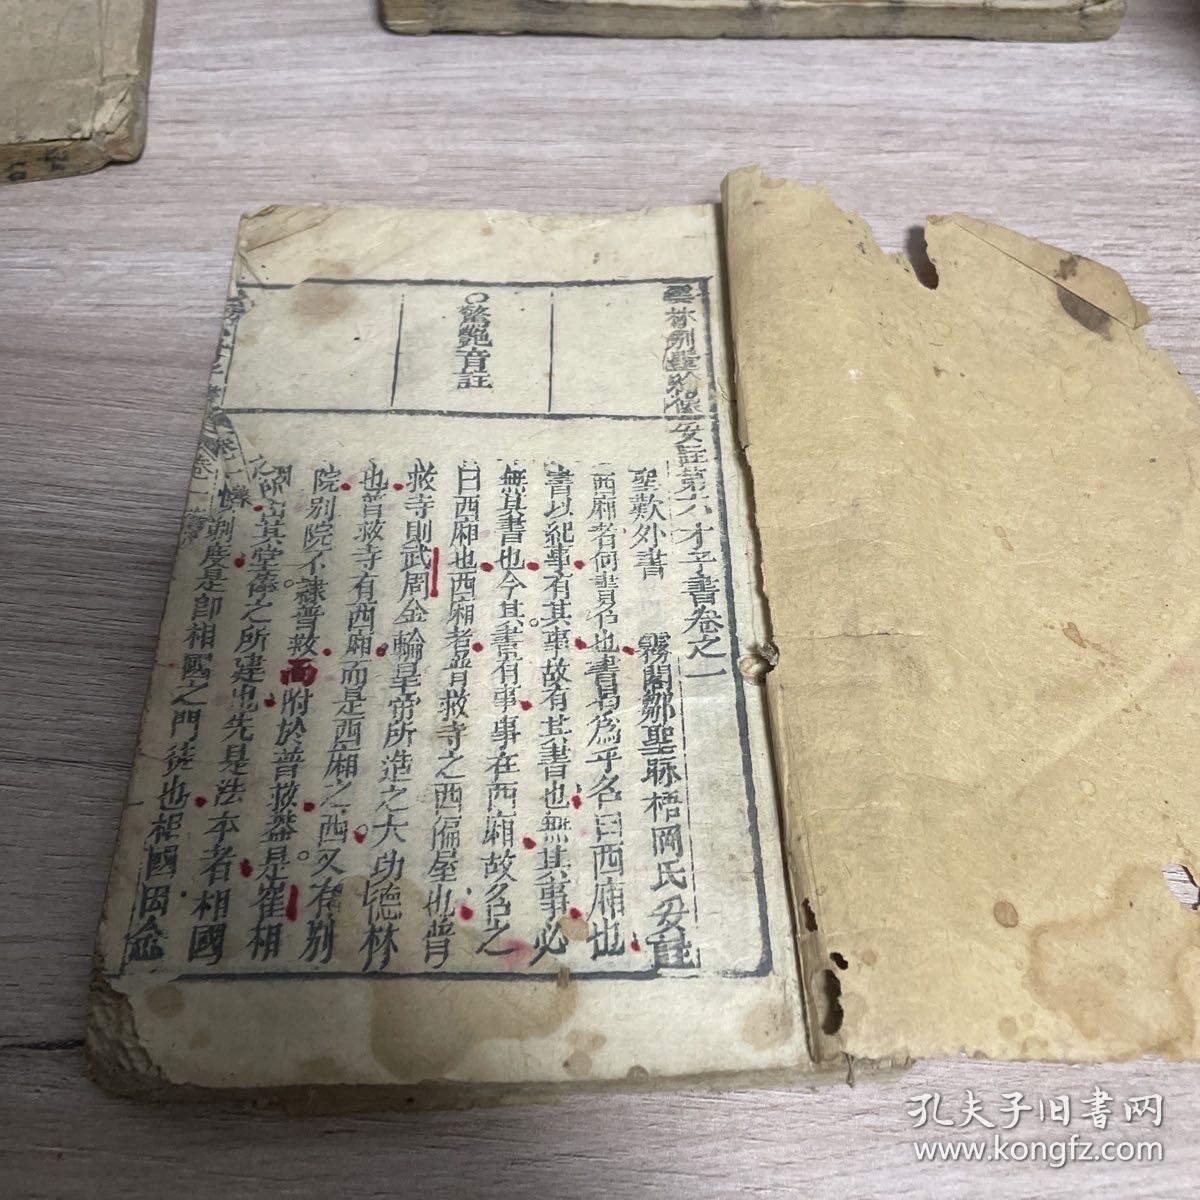 雲林別墅繪像妥註第六才子書卷之一
聖歎外書　霧閣鄒聖脈梧岡氏妥註
○驚艷音註
西廂者何書名也書曷為乎名曰西廂也
書以紀事有其事故有其書也無其事必
無其書也今其書有事事在西廂故名之
曰西廂也西廂者普救寺之西偏屋也普
救寺則武周金輪皇帝所造之大功德林
也普救寺有西廂而是西廂之西又有別
院別院不隸普救而附於普救蓋是崔相
國出其堂俸之所建也先是法本者相國
之所剃度是即相國之門徒也相國因念
卷一
孔夫子旧书网
www.kongfz.com